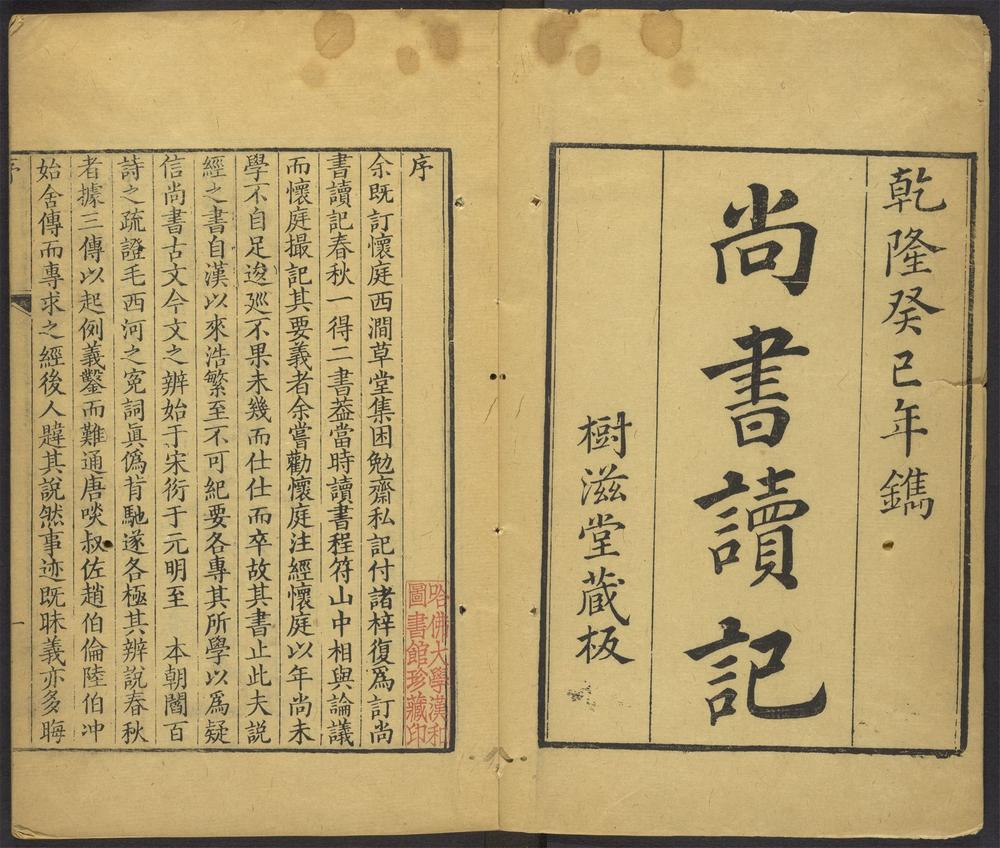 乾隆癸巳年鐫
尚書讀記
樹滋堂蔵板
序
余既訂懷庭西澗草堂集困勉齋私記付諸梓復爲訂尚
書讀記春秋一得二書葢當時讀書程符山中相與論議
而懷庭撮記其要義者余嘗勸懷庭注經懷庭以年尚未
學不自足逡廵不果未幾而仕仕而卒故其書止此夫説
經之書自漢以來浩繁至不可紀要各專其所學以爲疑
信尚書古文今文之辨始于宋衍于元明至　本朝閻百
詩之疏證毛西河之寃詞眞僞背馳遂各極其辨說春秋
者據三傳以起例義鑿而難通唐啖叔佐趙伯倫陸伯冲
始舍傳而專求之經後人韙其說然事迹既昧義亦多晦
哈佛大學漢和
圖書館珍藏印
序
一